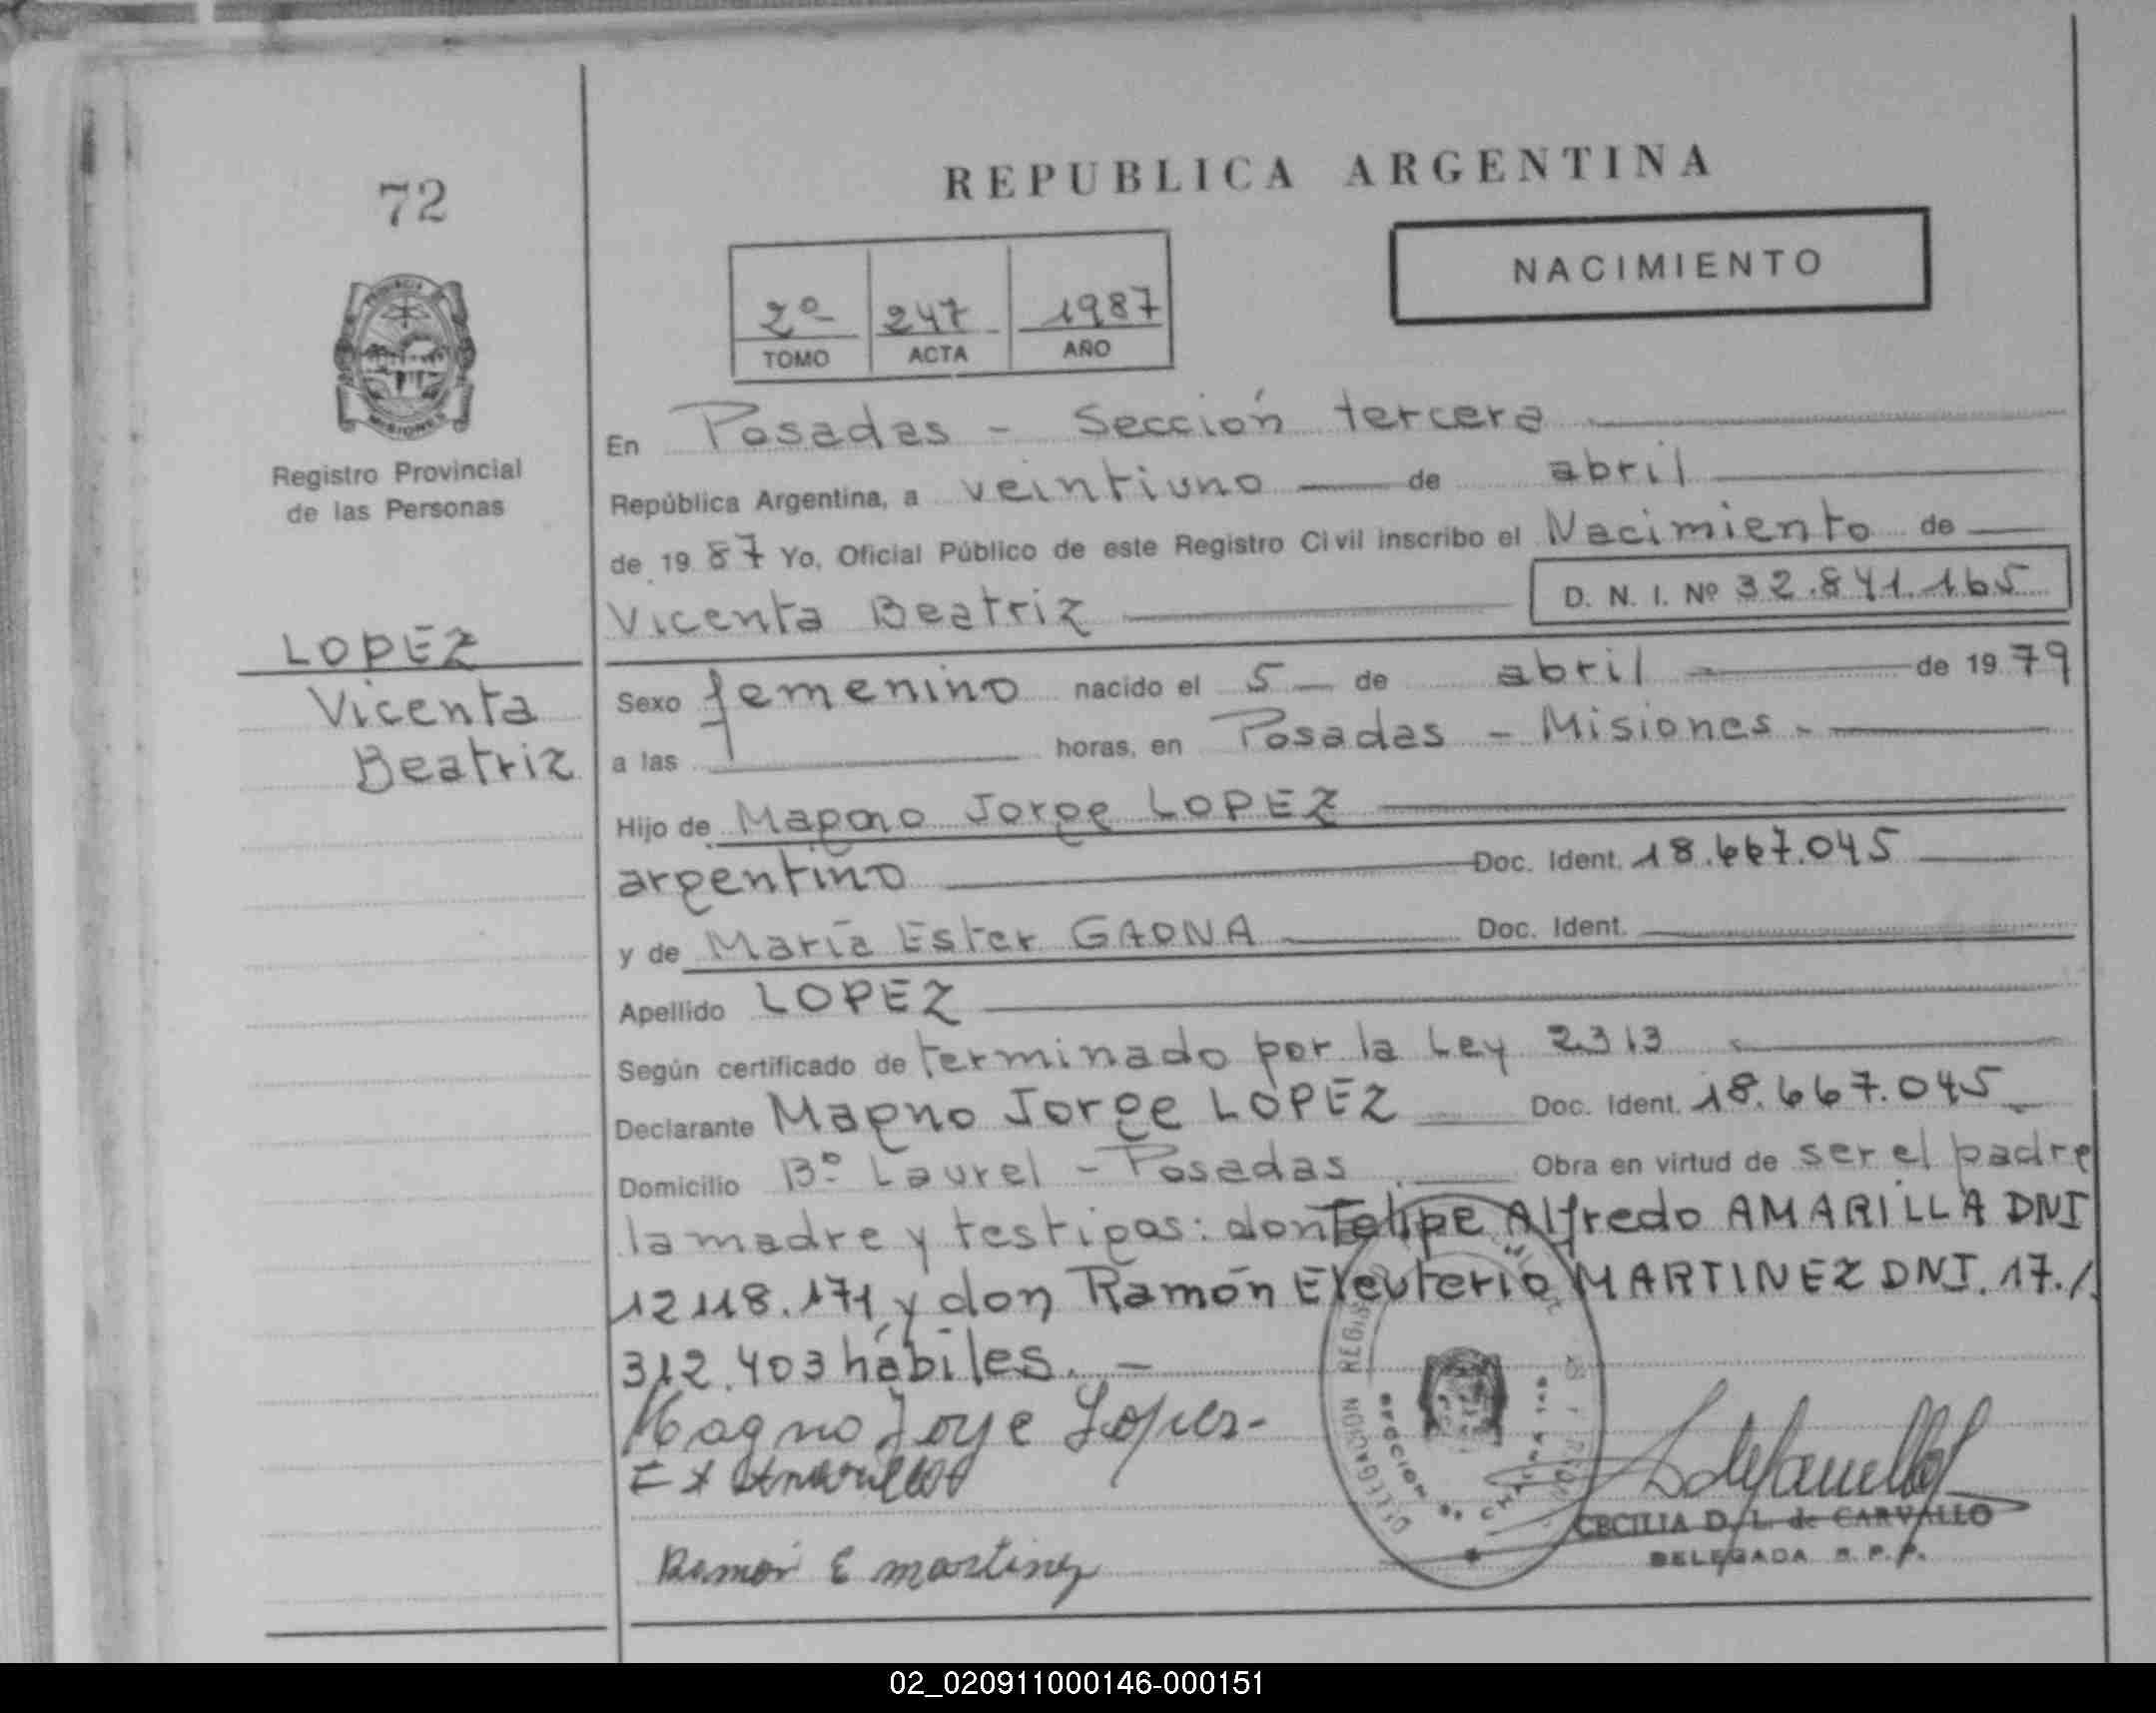 72
REPUBLICA ARGENTINA
NACIMIENTO
2º 247 1987
TOMO ACTA AÑO
PROVINCIA
MISIONES
Registro Provincial
de las Personas
LOPEZ
Vicenta
Beatriz
En Posadas - Sección tercera
República Argentina, a veintiuno de abril
de 1987 Yo, Oficial Público de este Registro Civil inscribo el Nacimiento de
Vicenta Beatriz D. N. I. Nº 32.841.165
Sexo femenino nacido el 5 de abril de 1979
a las horas, en Posadas - Misiones -
Hijo de Magno Jorge LOPEZ
argentino Doc. Ident. 18.667.045
y de María Ester GAONA Doc. Ident.
Apellido LOPEZ
Según certificado de terminado por la Ley 2313
Declarante Magno Jorge LOPEZ Doc. Ident. 18.667.045
Domicilio Bº Laurel - Posadas Obra en virtud de ser el padre
la madre y testigos: don Felipe Alfredo AMARILLA DNI
12118.171 y don Ramón Eleuterio MARTINEZ DNI. 17./
312.403 hábiles. -
Magno Jorge Lopes-
Ramón E martinez
DELEGACION REGIS
CECILIA D. L. de CARVALLO
DELEGADA R. P. P.
02_020911000146-000151